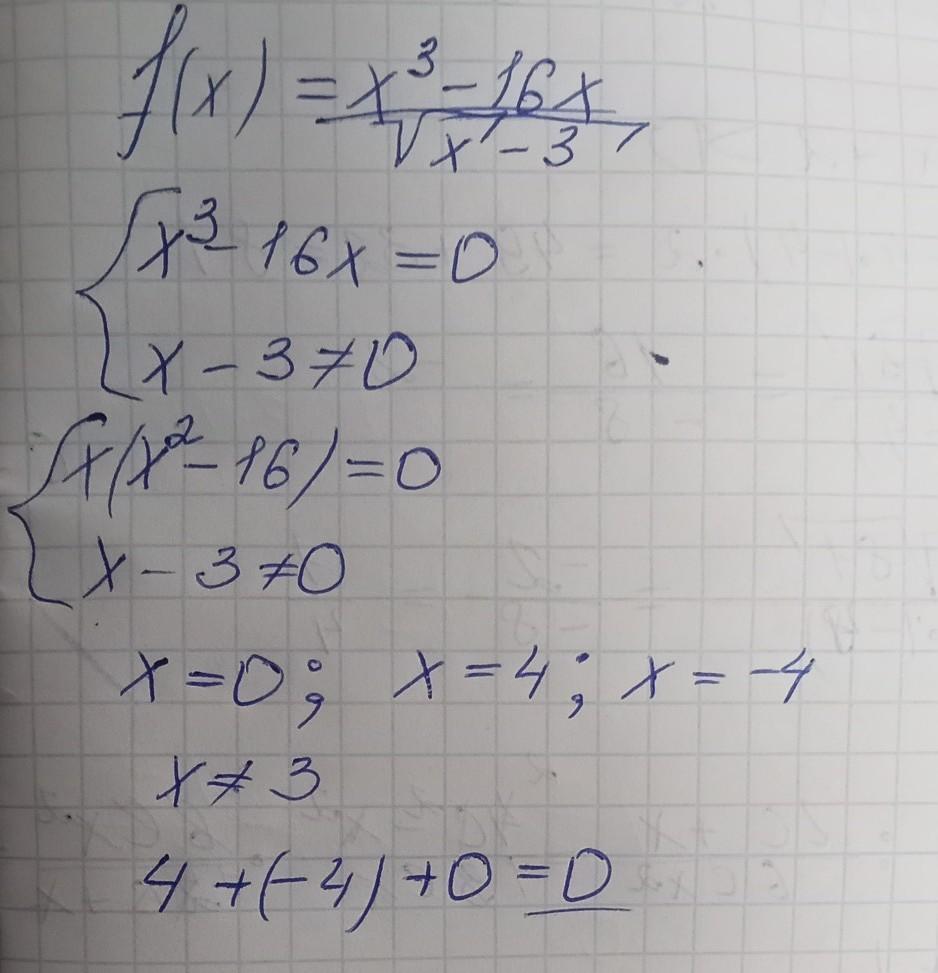 f(x) = x³ - 16x / √(x - 3)
{ x³ - 16x = 0
x - 3 ≠ 0
{ x(x² - 16) = 0
x - 3 ≠ 0
x = 0; x = 4; x = -4
x ≠ 3
4 + (-4) + 0 = 0